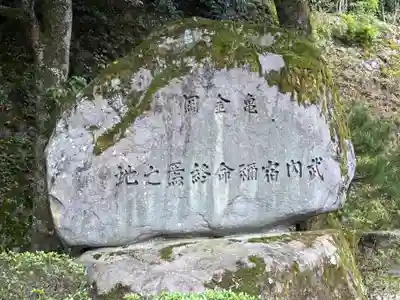 亀金岡
武内宿禰命終焉之地